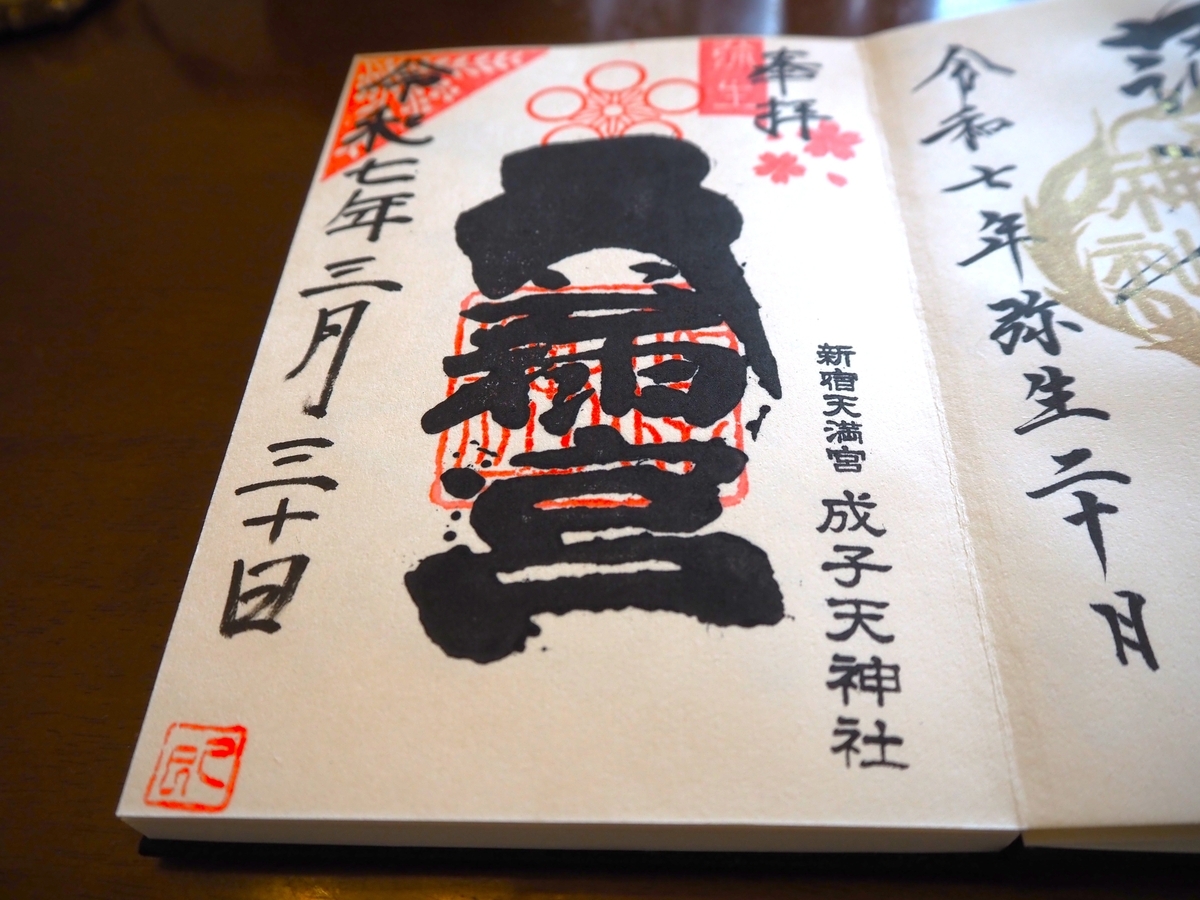 令和七年弥生二十月
奉拝
弥生
新宿天満宮 成子天神社
天満宮
令和七年三月三十日